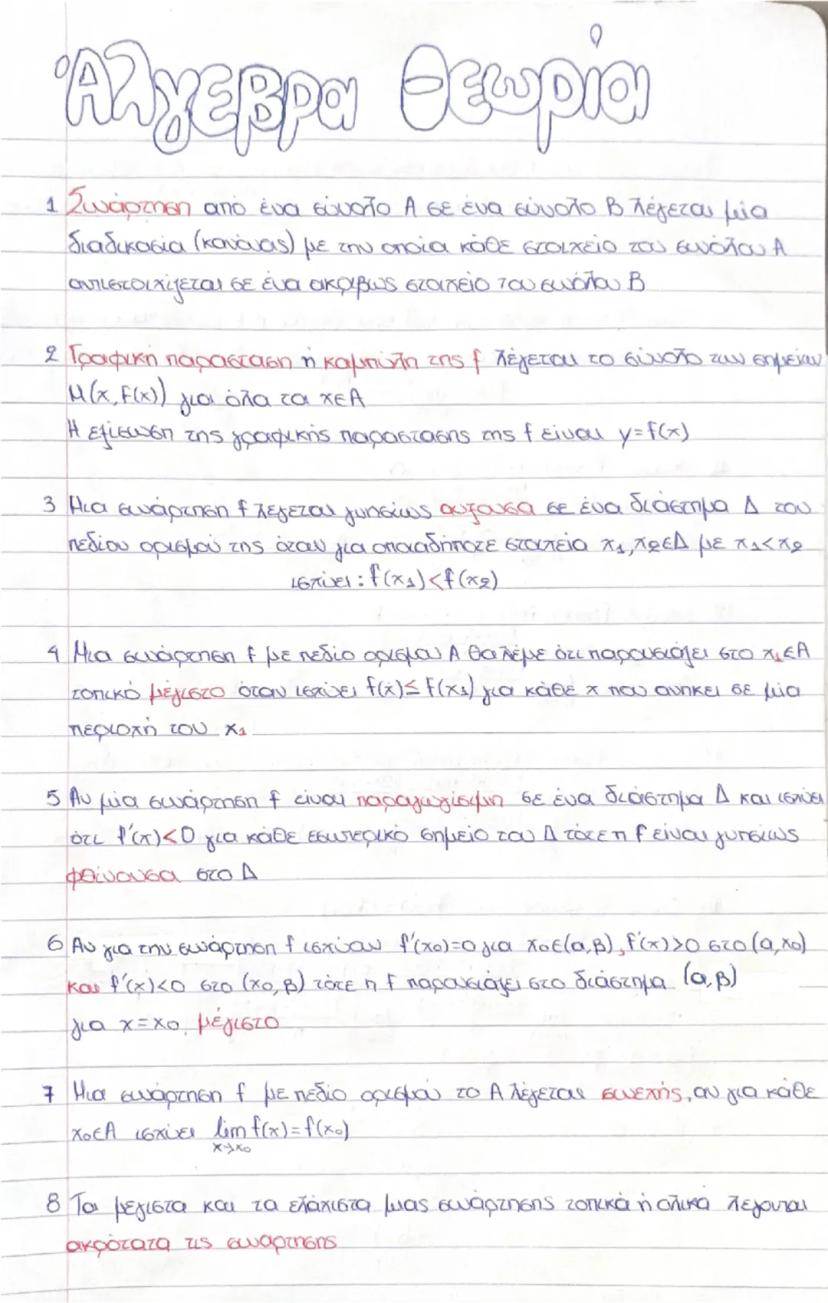 Άλγεβρα Θεωρία
1 Συνάρτηση από ένα σύνολο Α σε ένα σύνολο Β λέγεται μία
διαδικασία (κανόνας) με την οποία κάθε στοιχείο του συνόλου Α
αντιστοιχίζεται σε ένα ακριβώς στοιχείο του συνόλου Β
2 Γραφική παράσταση ή καμπύλη της f λέγεται το σύνολο των σημείων
Μ(x, f(x)) για όλα τα x∈A
Η εξίσωση της γραφικής παράστασης της f είναι y=f(x)
3 Μια συνάρτηση f λέγεται γνησίως αύξουσα σε ένα διάστημα Δ του
πεδίου ορισμού της όταν για οποιαδήποτε στοιχεία x₁,x₂∈Δ με x₁<x₂
ισχύει: f(x₁)<f(x₂)
4 Μια συνάρτηση f με πεδίο ορισμού Α θα λέμε ότι παρουσιάζει στο x₁∈A
τοπικό μέγιστο όταν ισχύει f(x)≤f(x₁) για κάθε x που ανήκει σε μία
περιοχή του x₁
5 Αν μία συνάρτηση f είναι παραγωγίσιμη σε ένα διάστημα Δ και ισχύει
ότι f'(x)<0 για κάθε εσωτερικό σημείο του Δ τότε η f είναι γνησίως
φθίνουσα στο Δ
6 Αν για την συνάρτηση f ισχύουν f'(x₀)=0 για x₀∈(α,β), f'(x)>0 στο (α,x₀)
και f'(x)<0 στο (x₀,β) τότε η f παρουσιάζει στο διάστημα (α,β)
για x=x₀ μέγιστο
7 Μια συνάρτηση f με πεδίο ορισμού το Α λέγεται συνεχής, αν για κάθε
x₀∈A ισχύει lim f(x)=f(x₀)
x→x₀
8 Τα μέγιστα και τα ελάχιστα μιας συνάρτησης τοπικά ή ολικά λέγονται
ακρότατα τις συνάρτησης